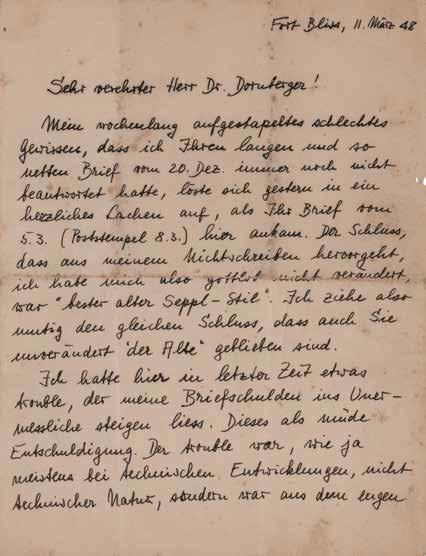 Fort Bliss, 11. März 48
Sehr verehrter Herr Dr. Dornberger!
Mein wochenlang aufgestapeltes schlechtes
Gewissen, dass ich Ihren langen und so
netten Brief vom 20. Dez. immer noch nicht
beantwortet hatte, löste sich gestern in ein
herzliches Lachen auf, als Ihr Brief vom
5.3. (Poststempel 8.3.) hier ankam. Der Schluss,
dass aus meinem Nichtschreiben hervorgeht,
ich habe mich also gottlob nicht verändert,
war "bester alter Seppl-Stil". Ich ziehe also
mutig den gleichen Schluss, dass auch Sie
unverändert "der Alte" geblieben sind.
Ich hatte hier in letzter Zeit etwas
trouble, der meine Briefschulden ins Uner-
messliche steigen liess. Dieses als müde
Entschuldigung. Der trouble war, wie ja
meistens bei technischen Entwicklungen, nicht
technischer Natur, sondern war aus dem engen